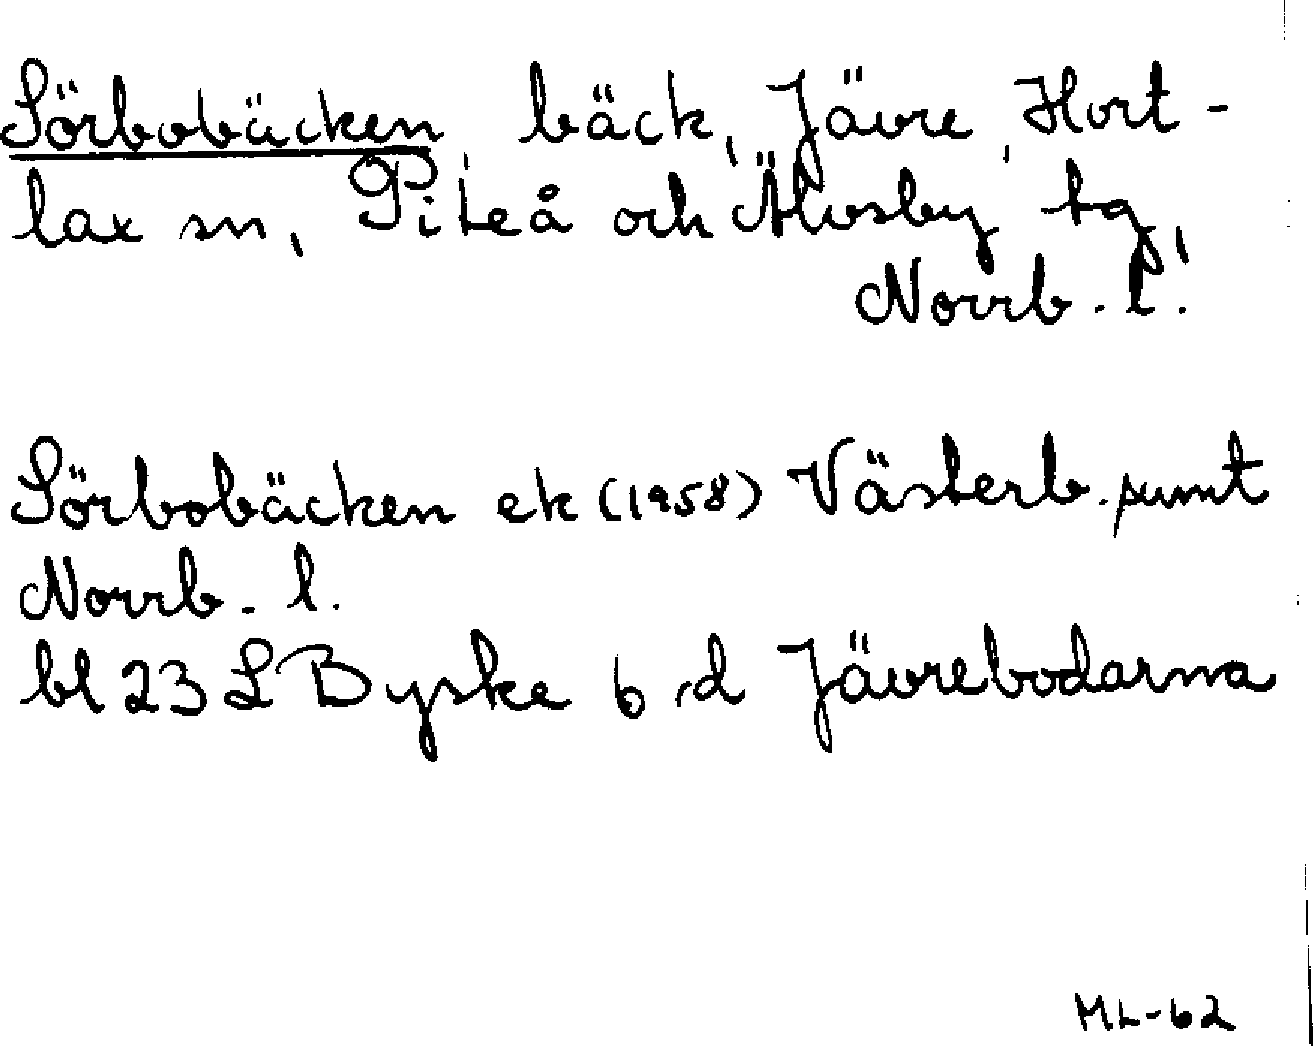 Sörbobäcken, bäck, Jävre, Hort-
lax sn, Piteå och Älvsby tg,
Norrb. l.
Sörbobäcken ek (1958) Västerb. samt
Norrb. l.
bl 23 L Byske 6 d Jävrebodarna
ML-62